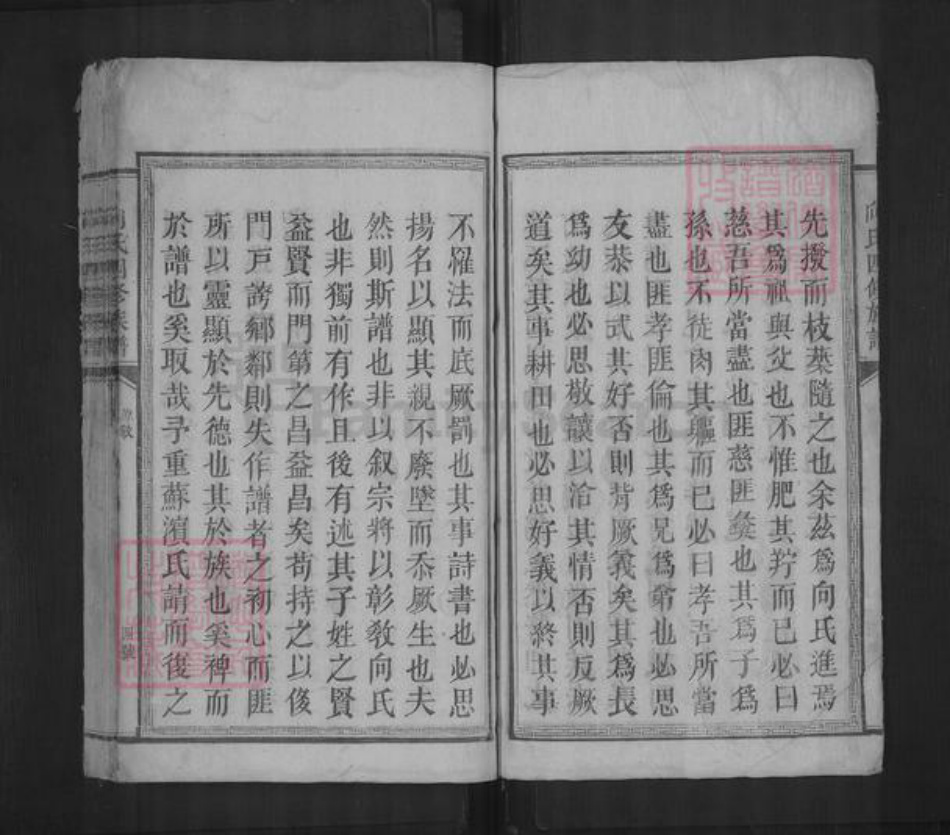 先撥而枝葉隨之也余茲爲向氏進焉
其爲祖與父也不惟肥其羜而已必曰
慈吾所當盡也匪慈匪彝也其爲子爲
孫也不徒肉其軀而已必曰孝吾所當
盡也匪孝匪倫也其爲兄爲弟也必思
友恭以式其好否則背厥義矣其爲長
爲幼也必思敬讓以洽其情否則反厥
道矣其事耕田也必思好義以終其事
不罹法而底厥罰也其事詩書也必思
揚名以顯其親不廢墜而忝厥生也夫
然則斯譜也非以叙宗將以彰敎向氏
也非獨前有作且後有述其子姓之賢
益賢而門第之昌益昌矣苟持之以傻
門戸誇鄉鄰則失作譜者之初心而匪
所以靈顯於先德也其於族也奚裨而
於譜也奚取哉予重蘇濱氏請而後之
向氏四修族譜
FamilySearch